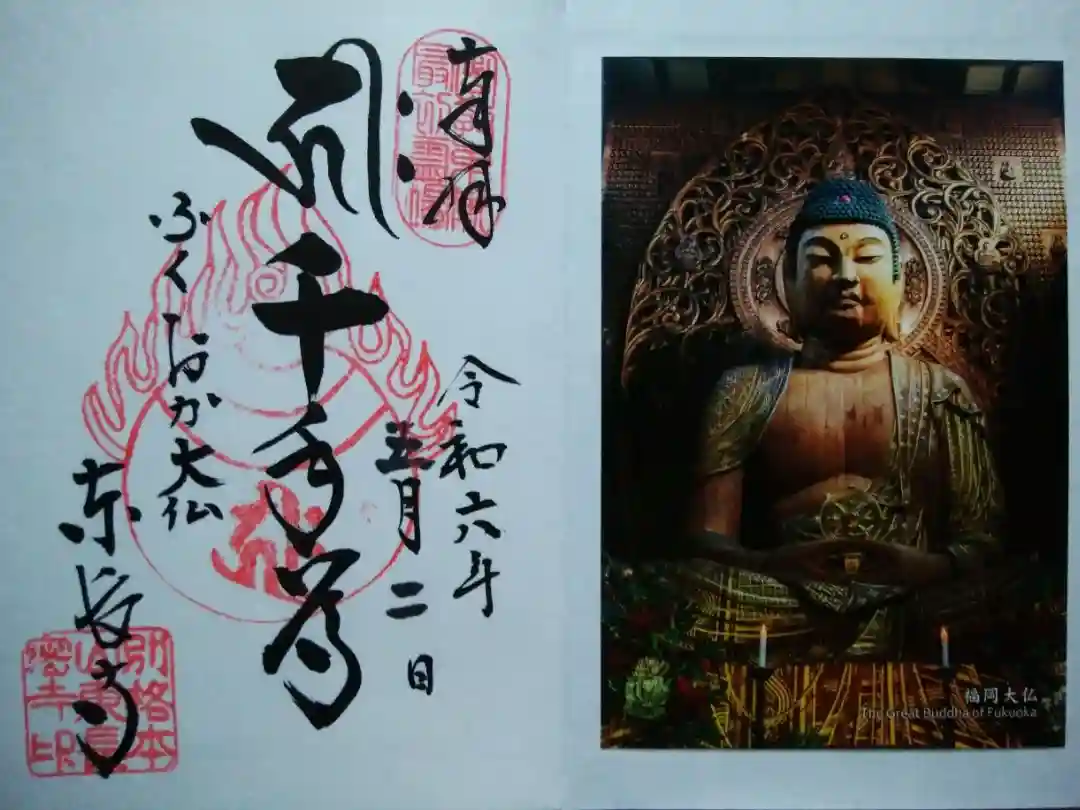 奉拝
令和六年
五月二日
千手尊
ふくおか大仏
東長寺
別格本
山東長
密寺印
福岡大仏
The Great Buddha of Fukuoka